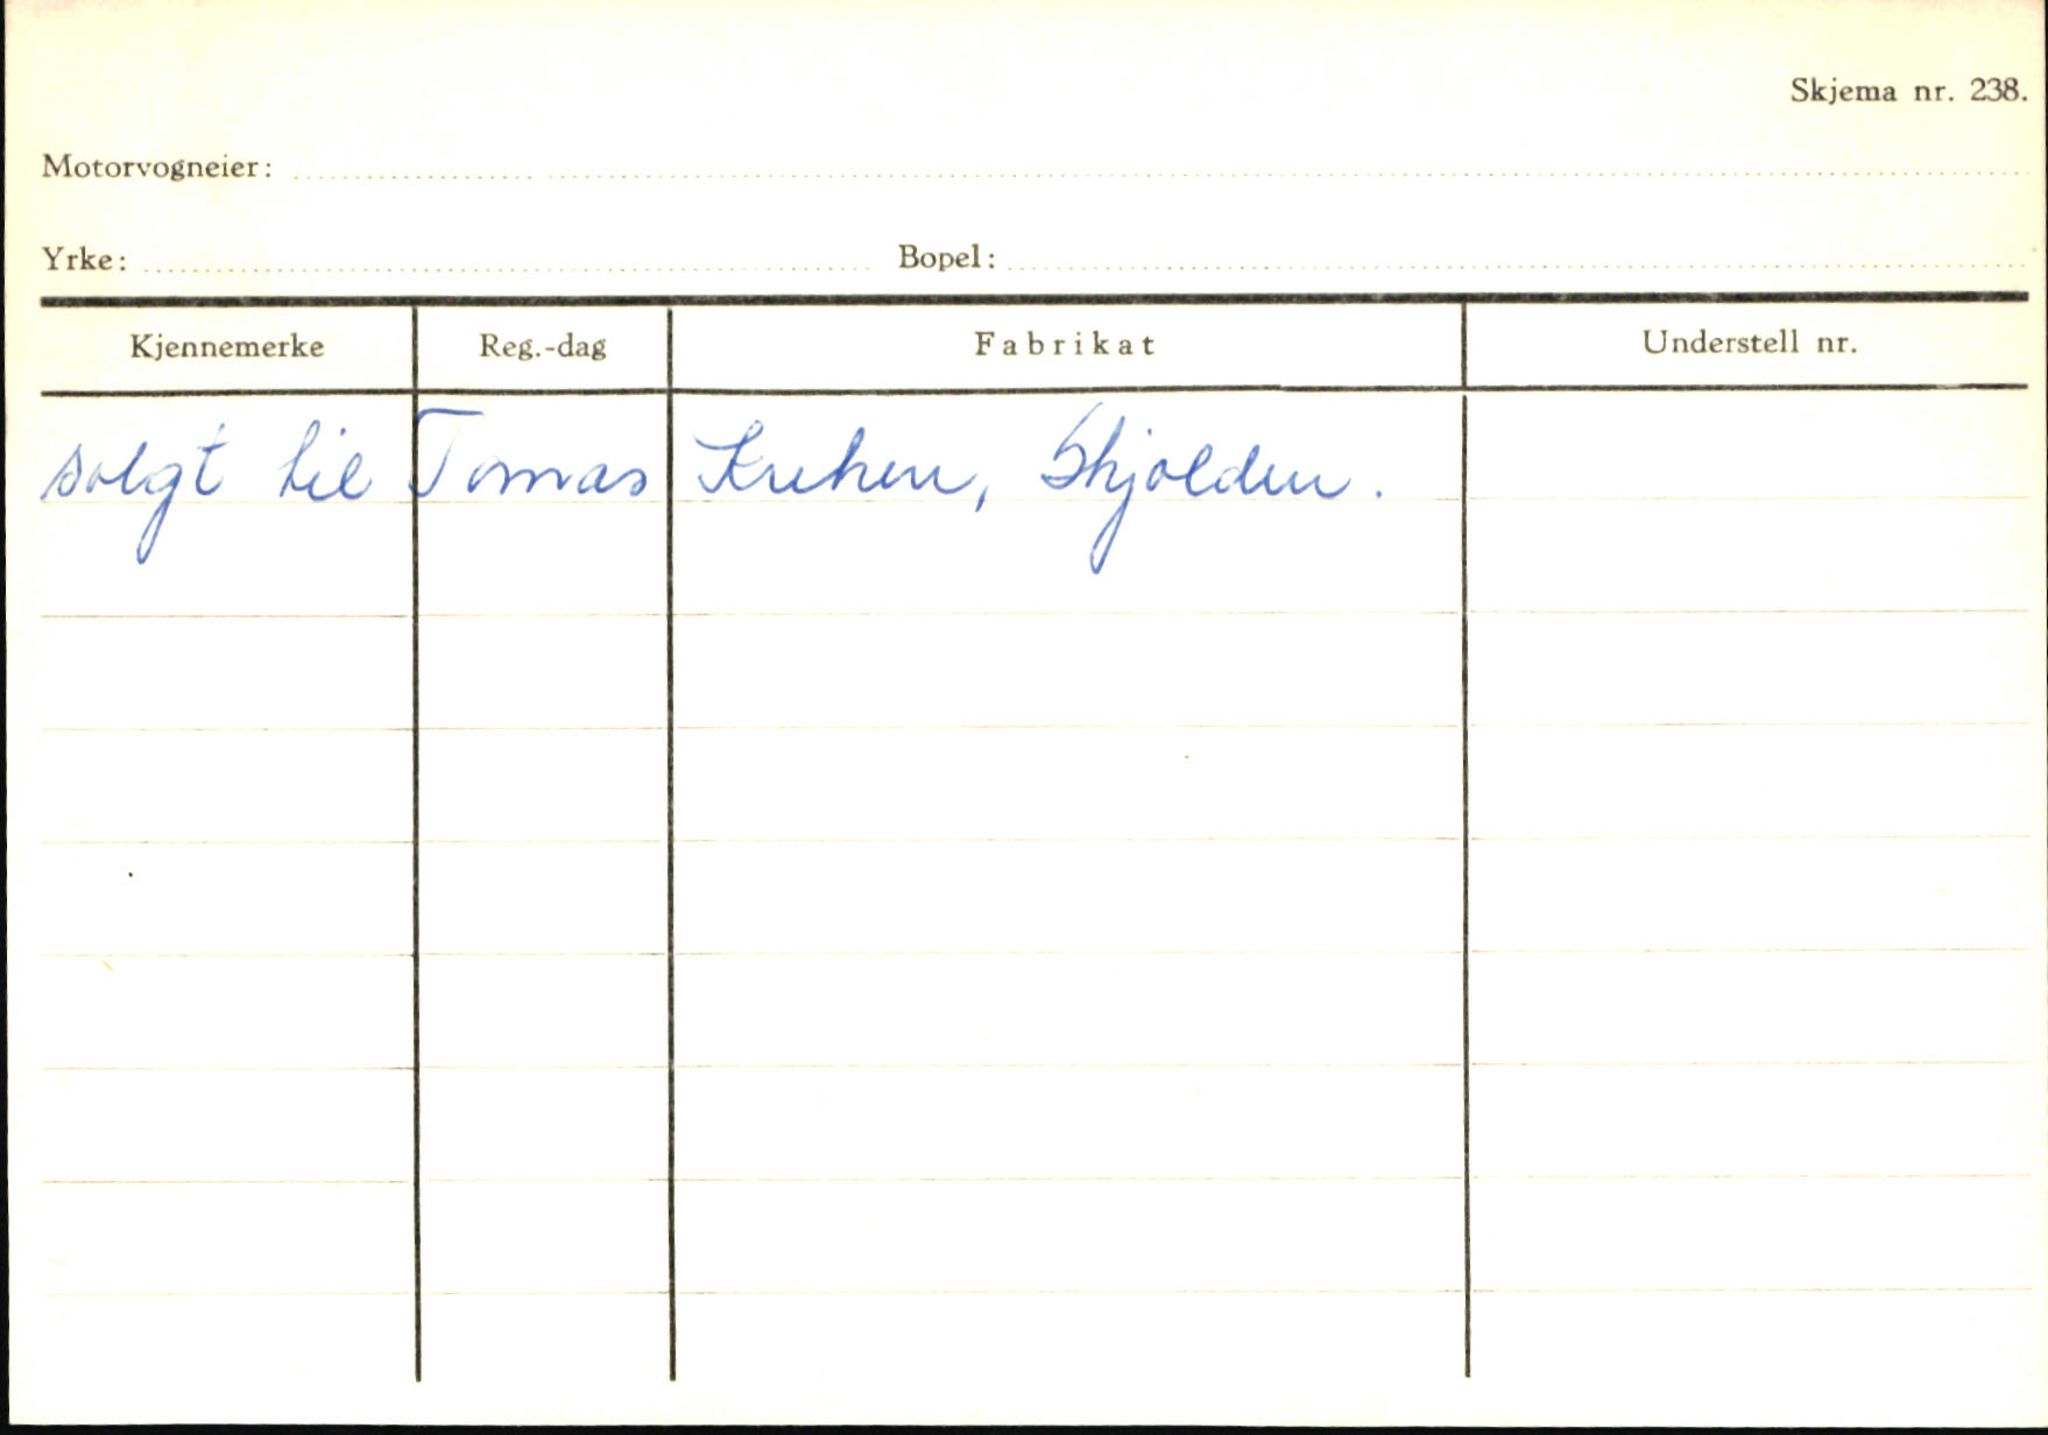 Skjema nr. 238.
Motorvogneier:
Yrke: Bopel:
Kjennemerke Reg.-dag Fabrikat Understell nr.
solgt til Tomas , Skjolden.